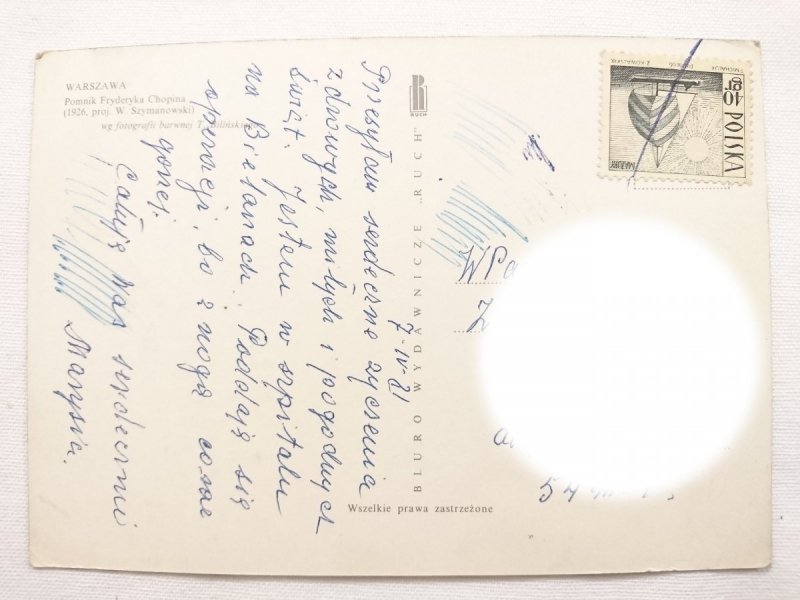 WARSZAWA
Pomnik Fryderyka Chopina
(1926, proj. W. Szymanowski)
wg fotografii barwnej T. Bilińskiego
7-IV-81
Przesyłam serdeczne życzenia
zdrowych, miłych i pogodnych
świąt. Jestem w szpitalu
na Bielanach. Poddaję się
operacji, bo z nogą coraz
gorzej.
Całuję Was serdecznie
Marysia.
RUCH
BIURO WYDAWNICZE „RUCH"
Wszelkie prawa zastrzeżone
40 GR
POLSKA
MAZURY
F. MICHALUK
Z. KOWALSKI
WP
Z
57